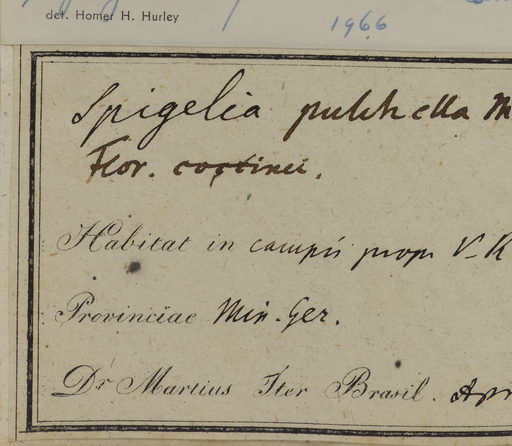 det. Homer H. Hurley
1966
Spigelia pulchella M
Flor. coccinei.
Habitat in campis prop. V-R
Provinciae Min. Ger.
Dr. Martius Iter Brasil. Apr